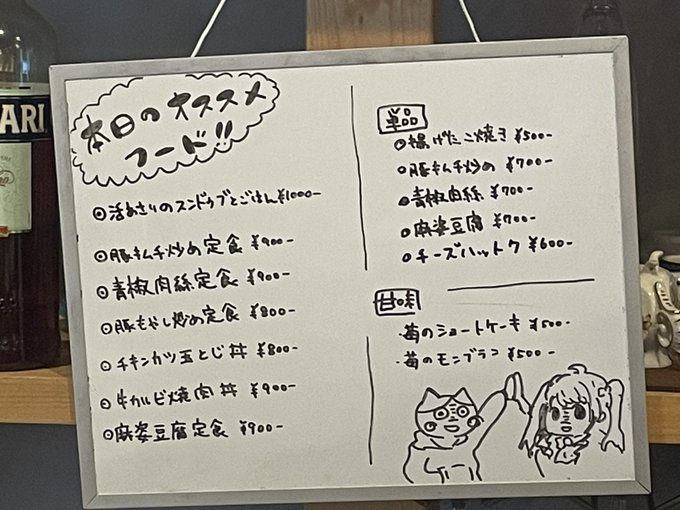 本日のオススメ
フード!!
◎活あさりのスンドゥブとごはん¥1000-
◎豚キムチ炒め定食 ¥900-
◎青椒肉絲定食 ¥900-
◎豚もやし炒め定食 ¥800-
◎チキンカツ玉とじ丼 ¥800-
◎牛カルビ焼肉丼 ¥900-
◎麻婆豆腐定食 ¥900-
単品
◎揚げたこ焼き ¥500-
◎豚キムチ炒め ¥700-
◎青椒肉絲 ¥700-
◎麻婆豆腐 ¥700-
◎チーズハットク ¥600-
甘味
・苺のショートケーキ ¥500-
・苺のモンブラン ¥500-
ARI